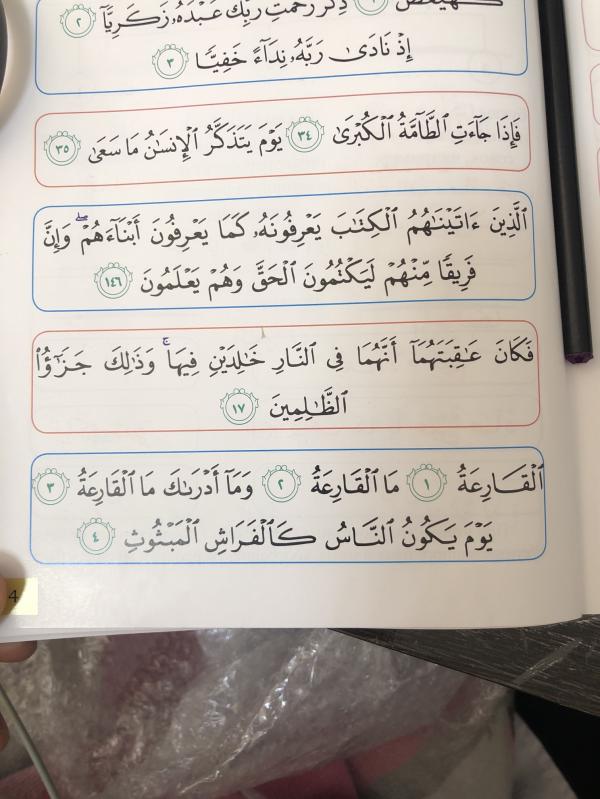 كٓهيعٓصٓ ١ ذِكْرُ رَحْمَتِ رَبِّكَ عَبْدَهُۥ زَكَرِيَّآ ٢
إِذْ نَادَىٰ رَبَّهُۥ نِدَآءً خَفِيًّا ٣
فَإِذَا جَآءَتِ ٱلطَّآمَّةُ ٱلْكُبْرَىٰ ٣٤ يَوْمَ يَتَذَكَّرُ ٱلْإِنسَٰنُ مَا سَعَىٰ ٣٥
ٱلَّذِينَ ءَاتَيْنَٰهُمُ ٱلْكِتَٰبَ يَعْرِفُونَهُۥ كَمَا يَعْرِفُونَ أَبْنَآءَهُمْ ۖ وَإِنَّ
فَرِيقًا مِّنْهُمْ لَيَكْتُمُونَ ٱلْحَقَّ وَهُمْ يَعْلَمُونَ ١٤٦
فَكَانَ عَٰقِبَتَهُمَآ أَنَّهُمَا فِى ٱلنَّارِ خَٰلِدَيْنِ فِيهَا ۚ وَذَٰلِكَ جَزَٰٓؤُا۟
ٱلظَّٰلِمِينَ ١٧
ٱلْقَارِعَةُ ١ مَا ٱلْقَارِعَةُ ٢ وَمَآ أَدْرَىٰكَ مَا ٱلْقَارِعَةُ ٣
يَوْمَ يَكُونُ ٱلنَّاسُ كَٱلْفَرَاشِ ٱلْمَبْثُوثِ ٤
4